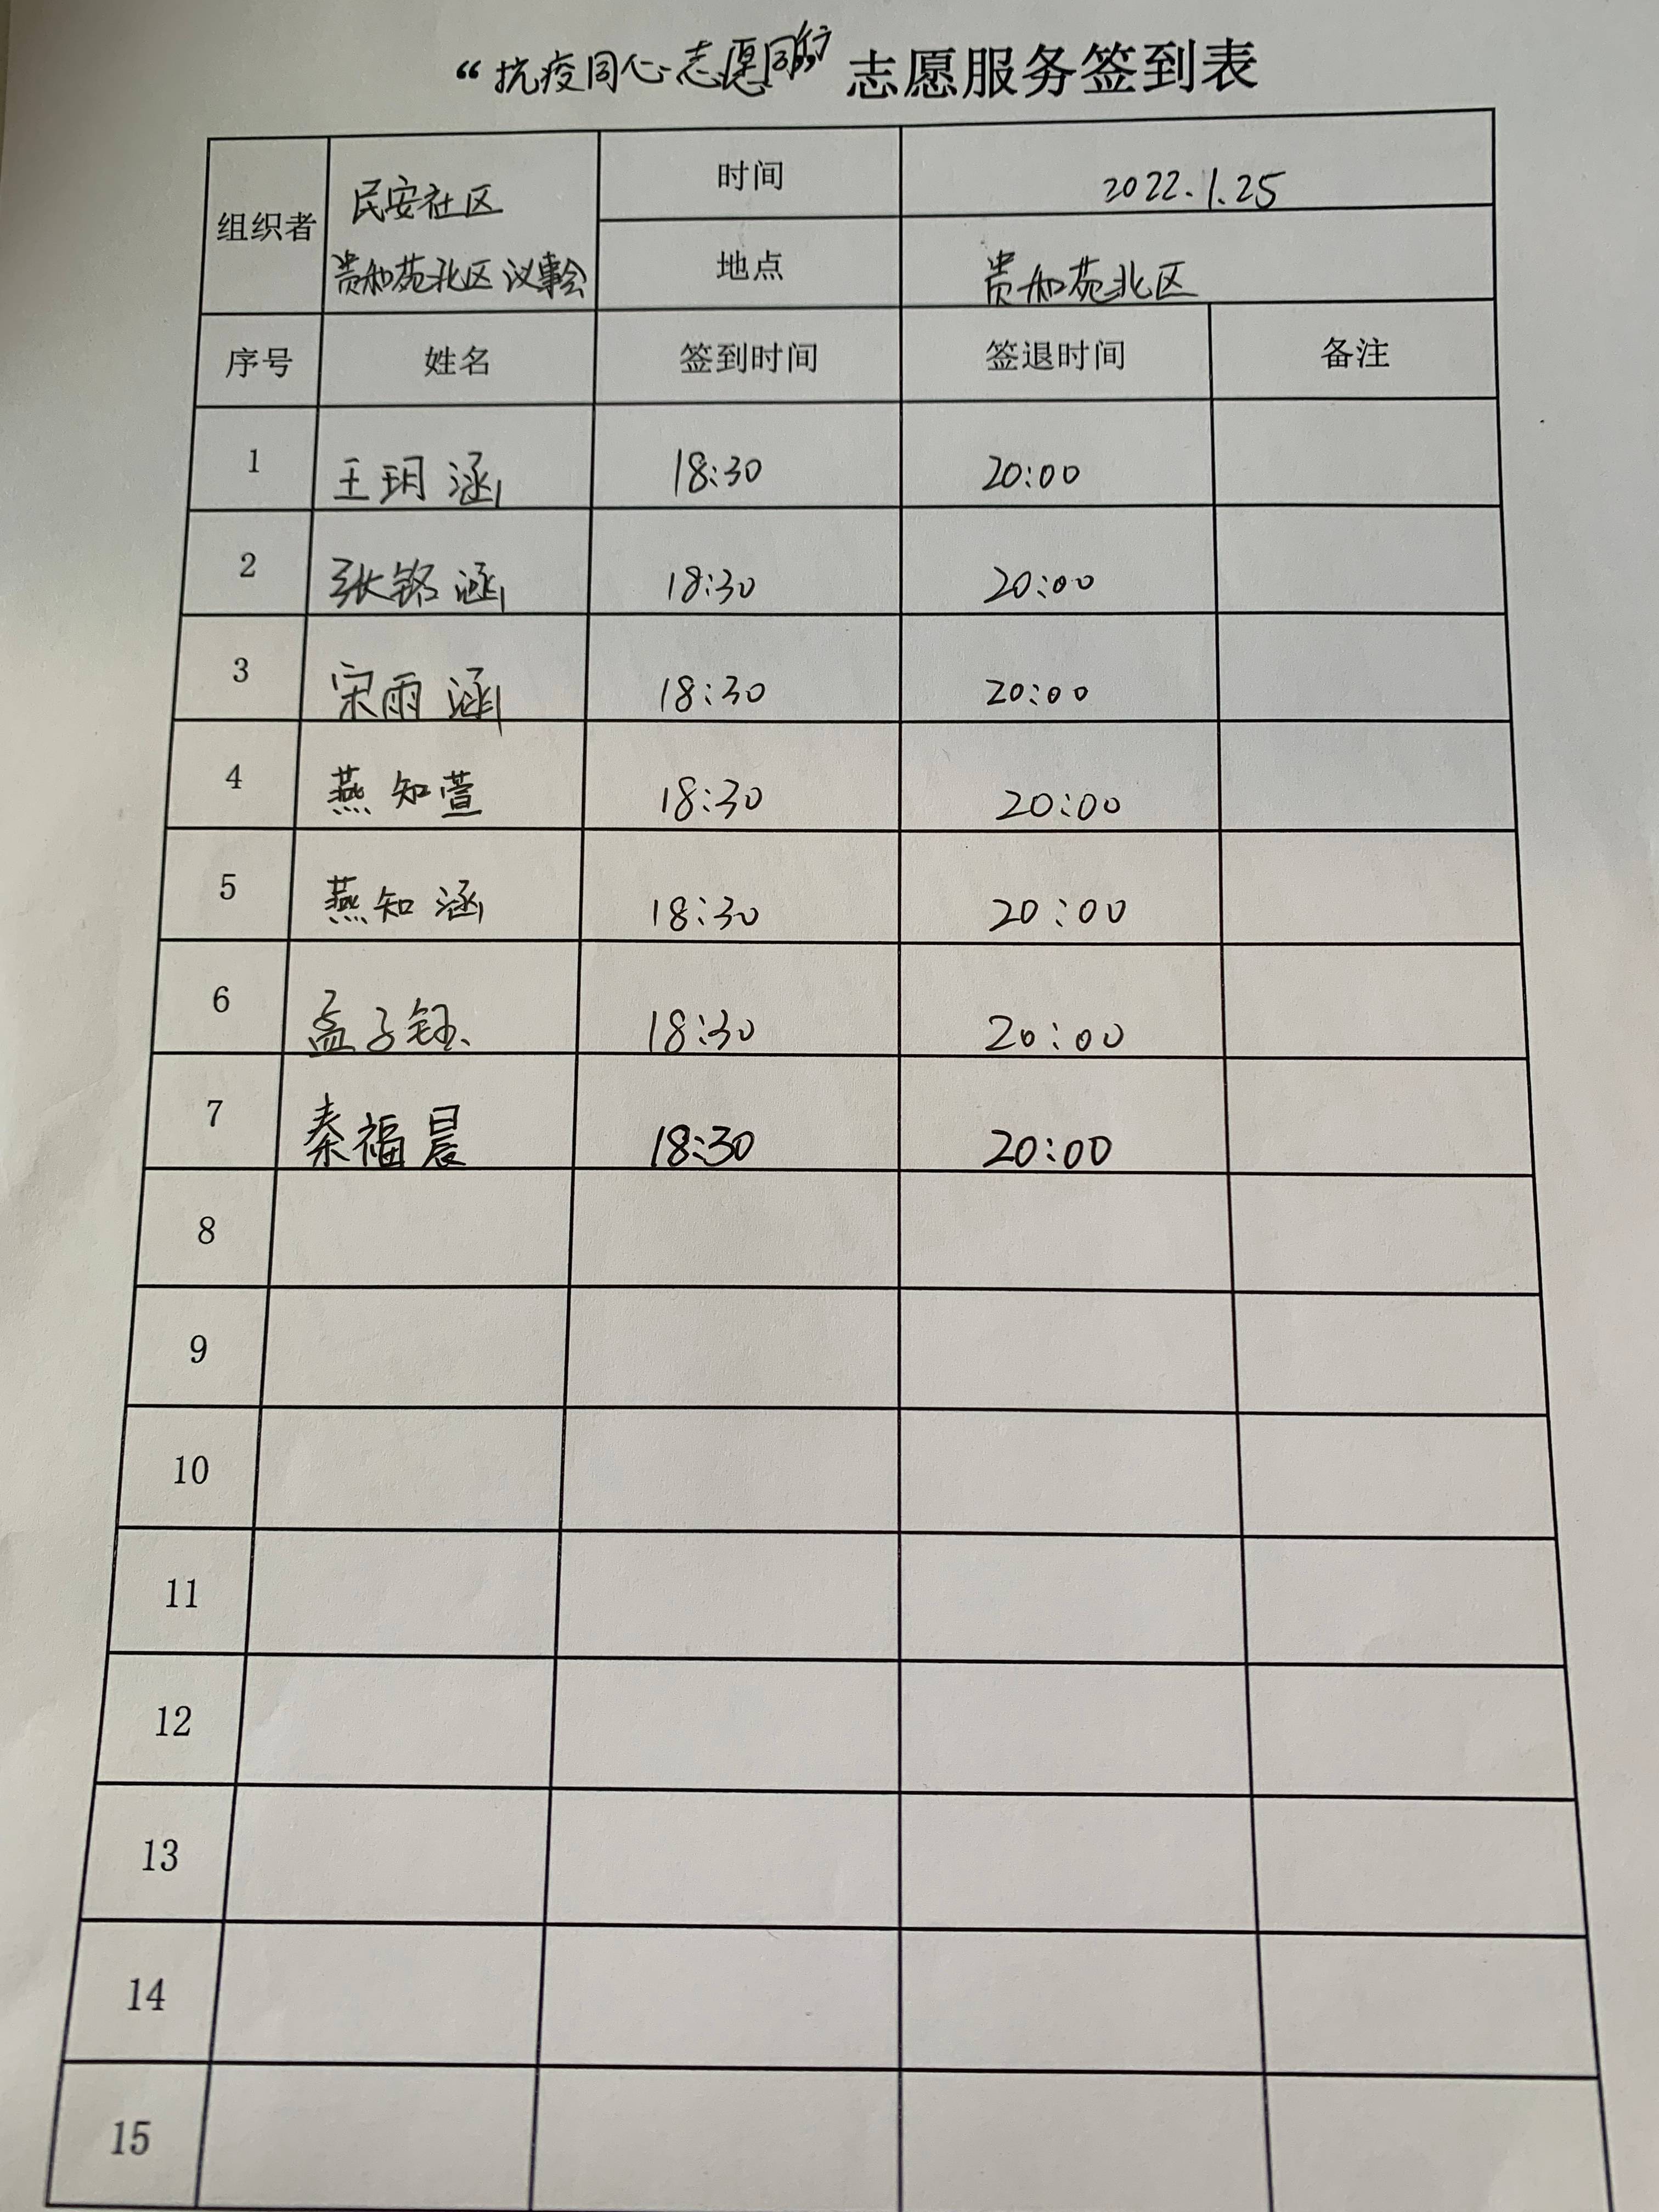 “抗疫同心志愿同行”志愿服务签到表
组织者 民安社区 时间 2022.1.25
贵和苑北区议事会 地点 贵和苑北区
序号 姓名 签到时间 签退时间 备注
1 王玥涵 18:30 20:00
2 张铭涵 18:30 20:00
3 宋雨涵 18:30 20:00
4 燕知萱 18:30 20:00
5 燕知涵 18:30 20:00
6 孟子钰 18:30 20:00
7 秦福晨 18:30 20:00
8
9
10
11
12
13
14
15